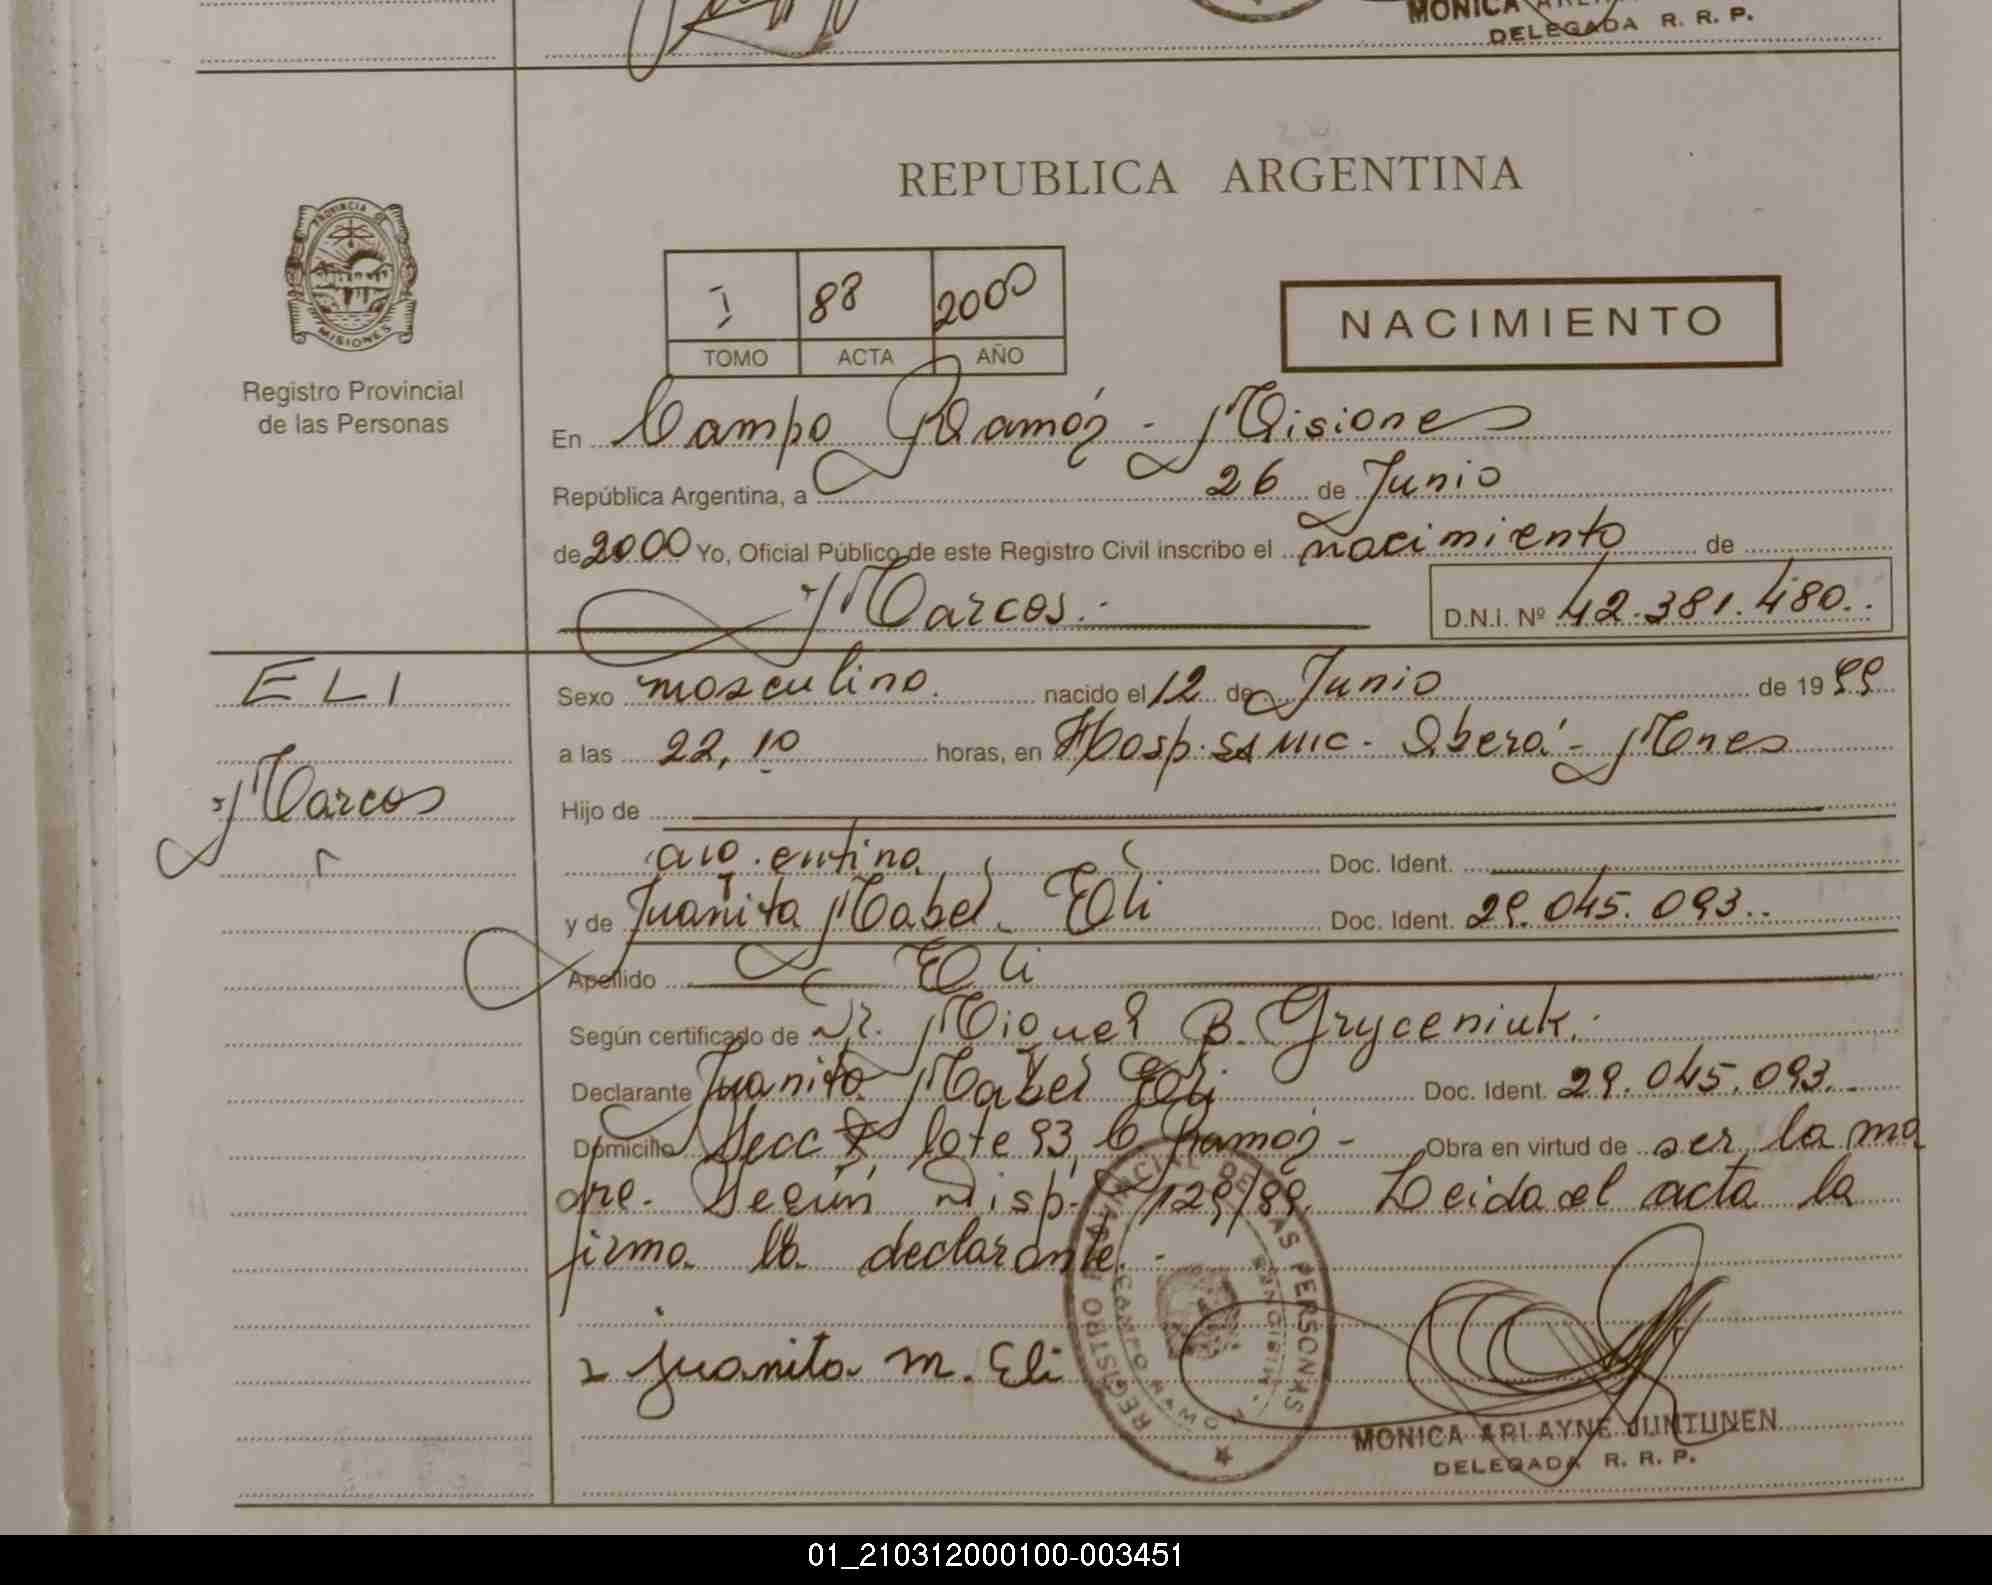 MONICA
DELEGADA R. R. P.
REPUBLICA ARGENTINA
PROVINCIA DE
MISIONES
Registro Provincial
de las Personas
I 88 2000
TOMO ACTA AÑO
NACIMIENTO
En Campo Ramón - Misiones
República Argentina, a 26 de Junio
de 2000 Yo, Oficial Público de este Registro Civil inscribo el nacimiento de
Marcos.-
D.N.I. Nº 42.381.480..
ELI
Marcos
Sexo masculino. nacido el 12 de Junio de 1999
a las 22,10 horas, en Hosp. SAMIC - Oberá - Mnes
Hijo de
argentina Doc. Ident.
y de Juanita Mabel Eli Doc. Ident. 29.045.093..
Apellido Eli
Según certificado de Dr. Miguel B. Gryceniuk.-
Declarante Juanita Mabel Eli Doc. Ident. 29.045.093.-
Domicilio Secc lote 93, C. Ramón - Obra en virtud de ser la ma
dre. Según Disp. 129/89. Leida el acta la
firma la declarante.-
Juanita M. Eli
REGISTRO PROVINCIAL DE LAS PERSONAS
CAMPO RAMON
MONICA ARLAYNE JUNTUNEN
DELEGADA R. R. P.
01_210312000100-003451